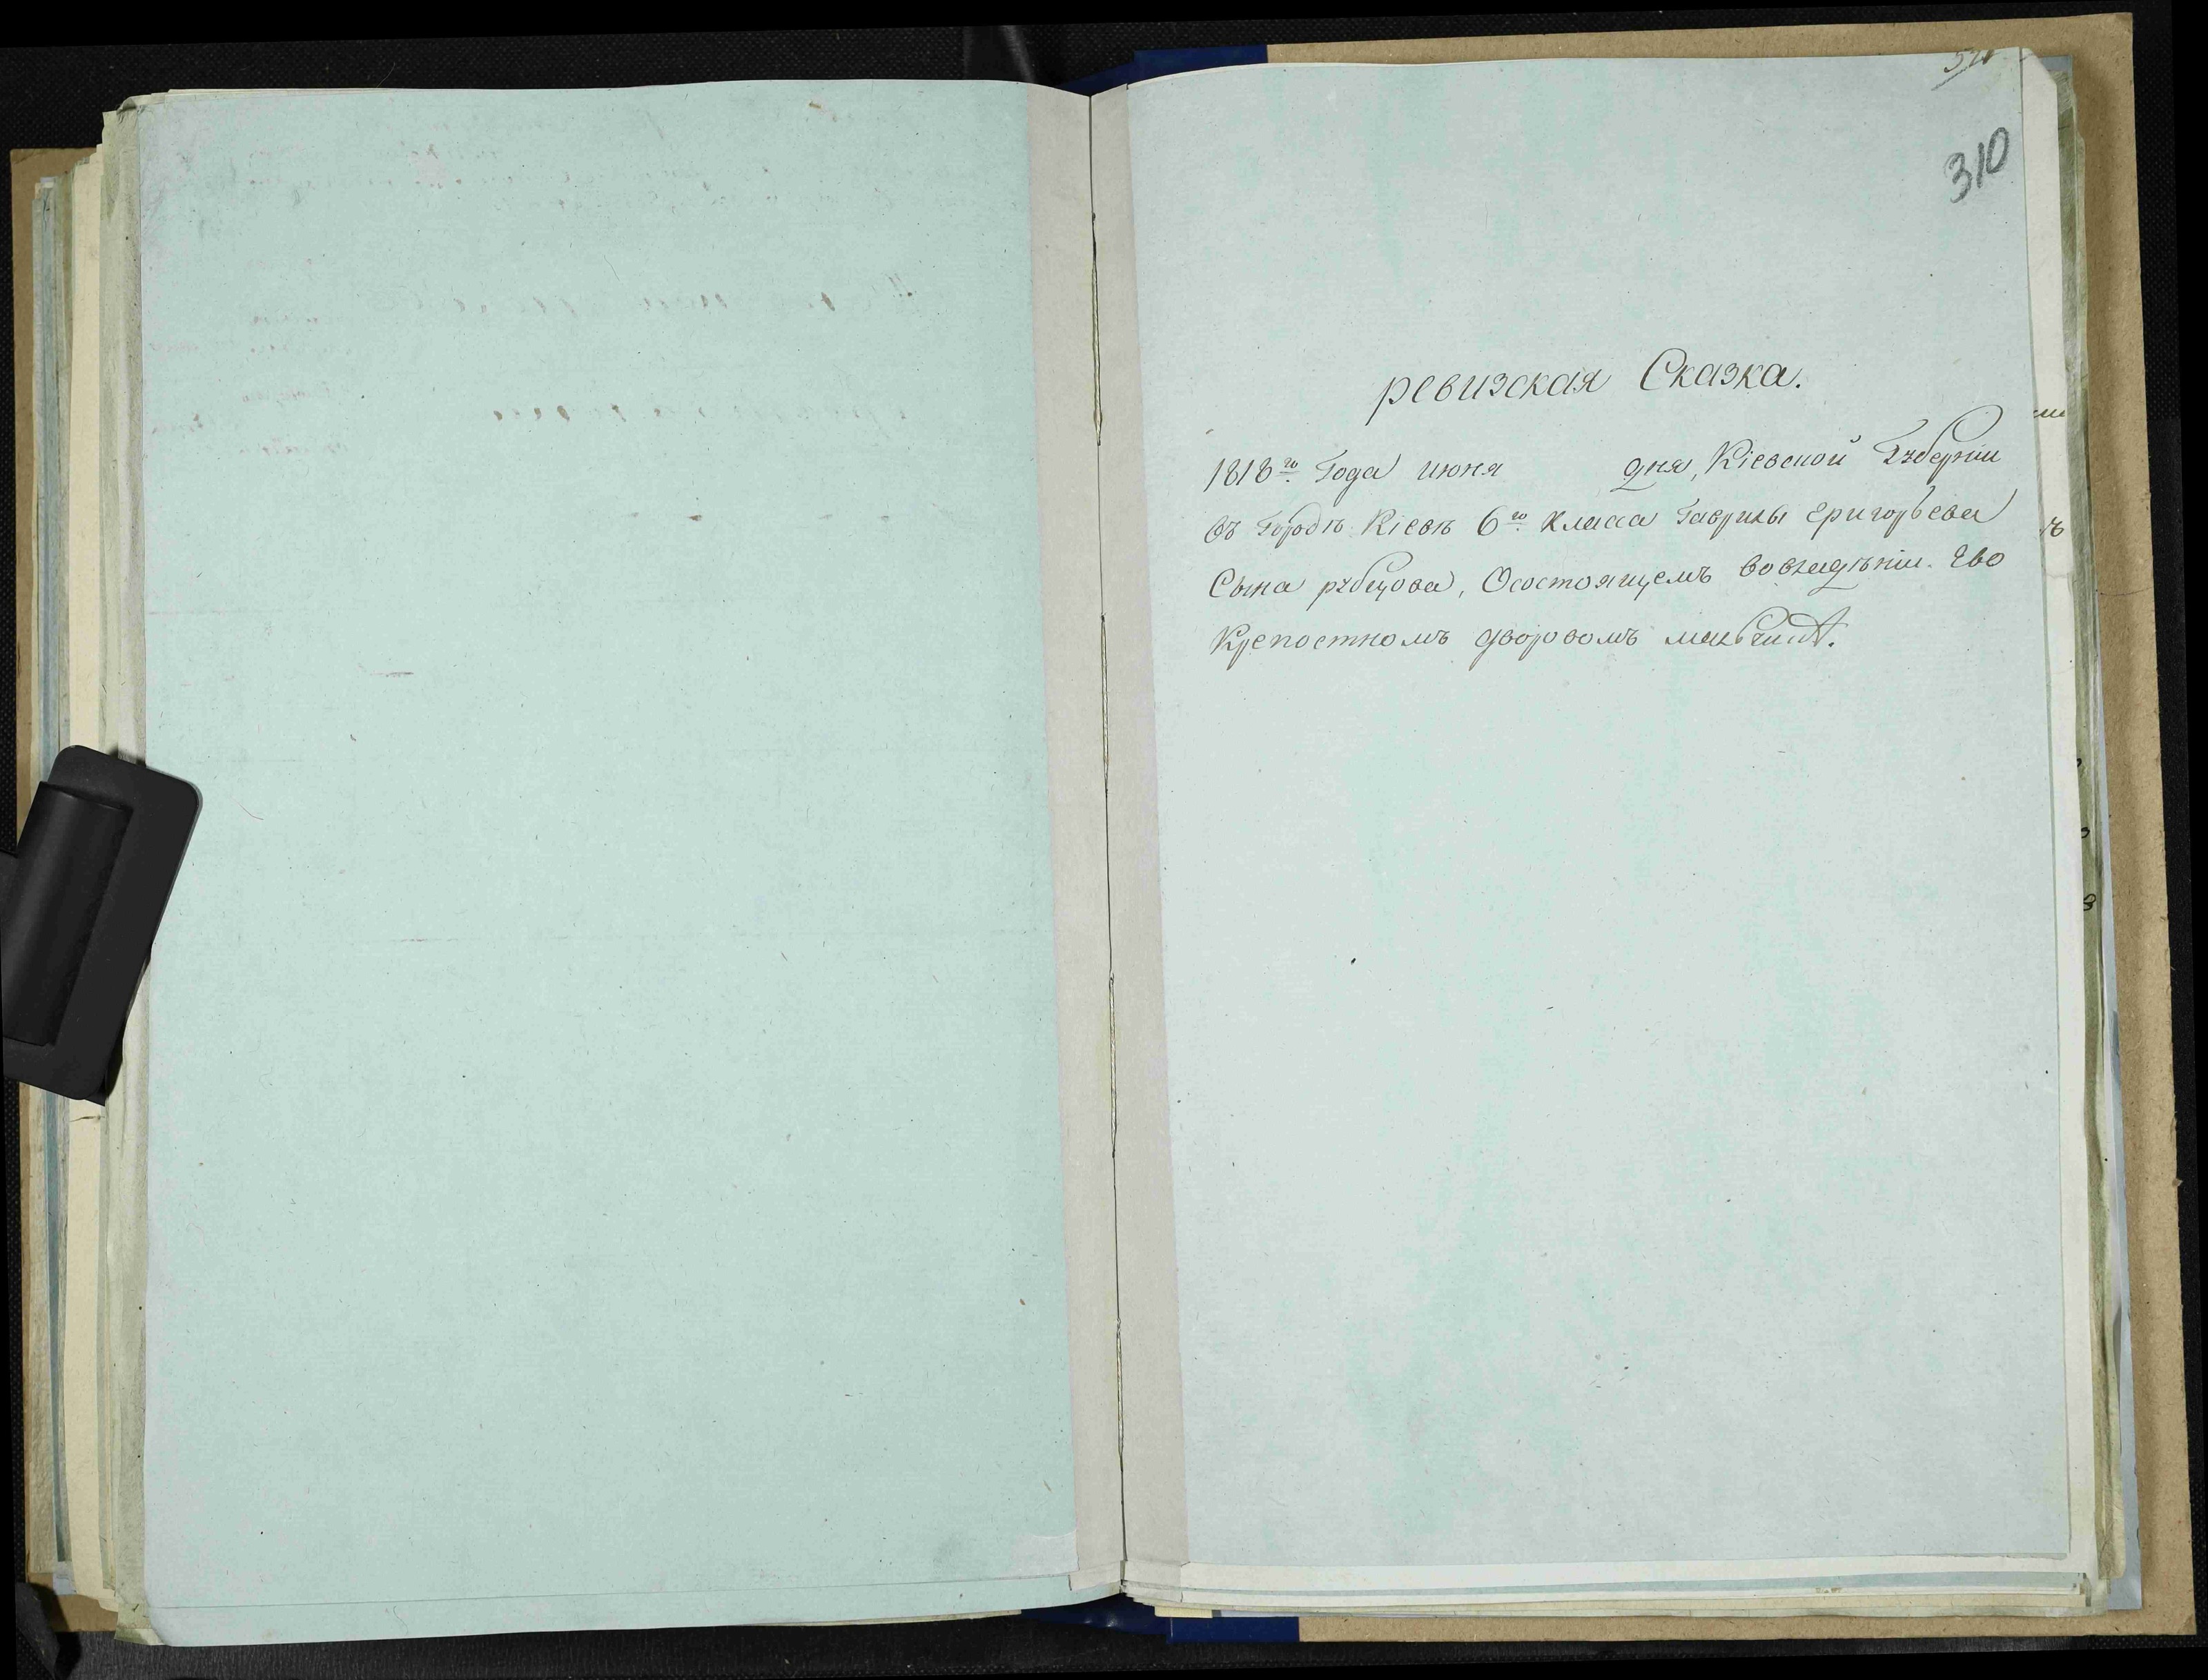 310
ревизская Сказка.
1818го Года июня дня, Кіевской Губерніи
въ Городѣ Кіевѣ 6го Класса Гаврилы Григорьева
Сына рубцова, Осостоящемъ вовладѣніи Ево
Крепостномъ дворовомъ мальчикѣ.